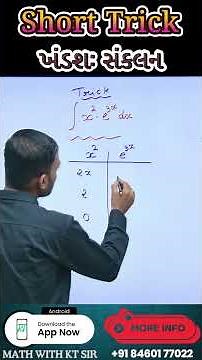 Short Trick
ખંડશઃ સંકલન
Trick
∫ x² · e³ˣ dx
x² e³ˣ
2x
2
0
Android
Download the
App Now
MORE INFO
MATH WITH KT SIR +91 84801 77022